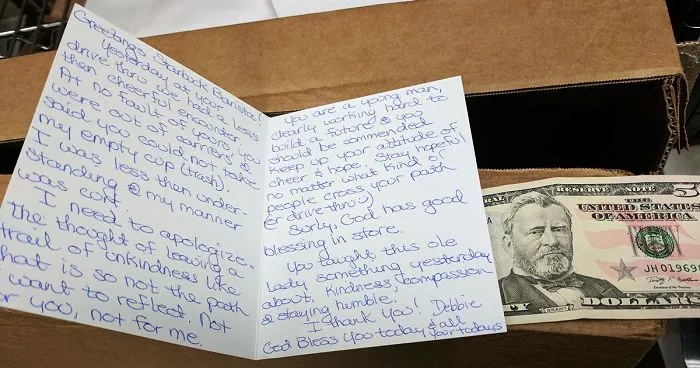 Greetings Starbuck Barista!
Yesterday at your
drive thru we had a less
then cheerful encounter.
At no fault of yours, you
were out of carriers &
said you could not take
my empty cup (trash).
I was less then under-
standing & my manner
was curt.
I need to apologize.
The thought of leaving a
trail of unkindness like
that is so not the path
I want to reflect. Not
for you, not for me.
You are a young man,
clearly working hard to
build a future & you
should be commended.
Keep up your attitude of
cheer & hope. Stay hopeful
no matter what kind of
people cross your path
(er drive thru :)
Surly, God has good
blessing in store.
You taught this ole
Lady something yesterday
about, kindness, compassion
& staying humble.
I thank you! Debbie
God Bless you today & all
your todays
RESERVE NOTE
THE
UNITED STATES
OF AMERICA
JH01969
DOLLARS